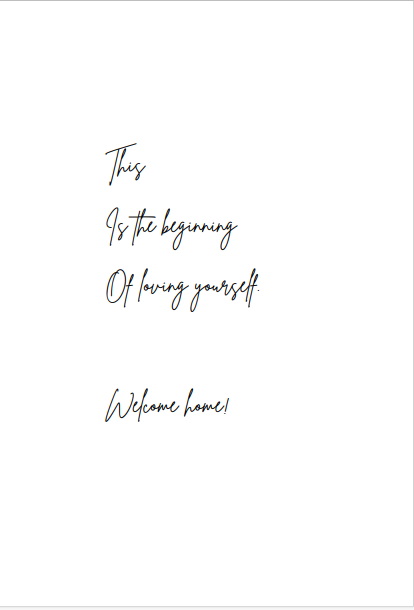 This
Is the beginning
Of loving yourself.
Welcome home!